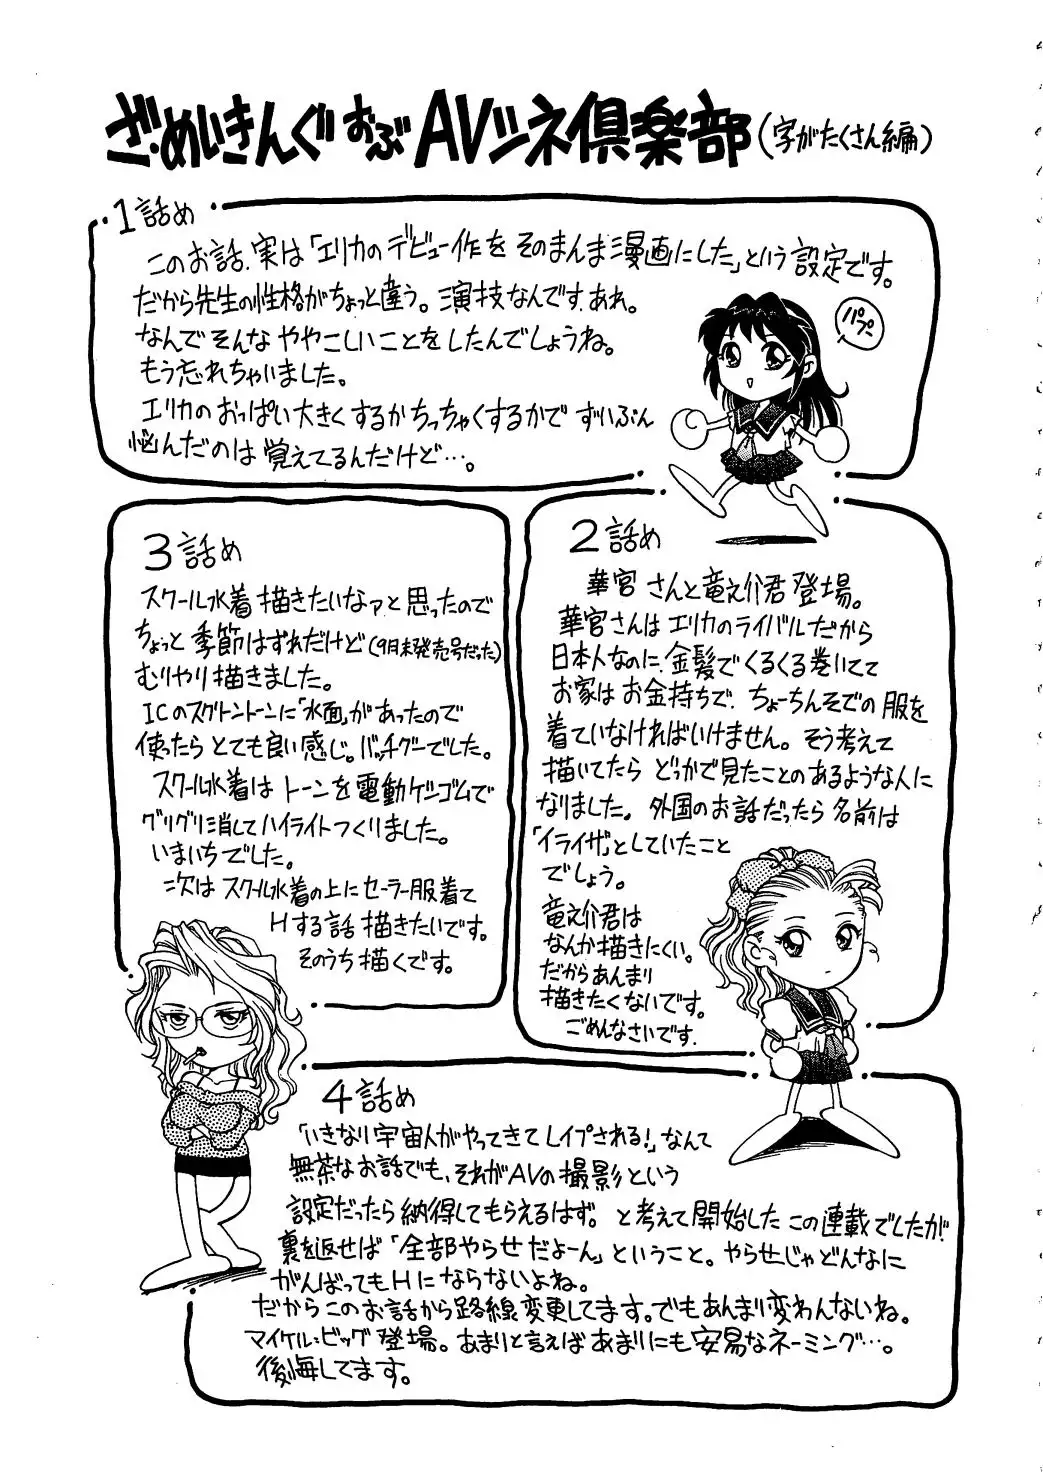 ざ・めいきんぐ おぶ AVシネ倶楽部(字がたくさん編)
1話め
このお話、実は「エリカのデビュー作をそのまんま漫画にした」という設定です。
だから先生の性格がちょっと違う。演技なんです、あれ。
なんでそんなややこしいことをしたんでしょうね。
もう忘れちゃいました。
エリカのおっぱい大きくするかちっちゃくするかでずいぶん
悩んだのは覚えてるんだけど…。
パプ
2話め
華宮さんと竜之介君登場。
華宮さんはエリカのライバルだから
日本人なのに、金髪でくるくる巻いてて
お家はお金持ちで、ちょーちんそでの服を
着ていなければいけません。そう考えて
描いてたらどっかで見たことのあるような人に
なりました。外国のお話だったら名前は
「イライザ」としていたこと
でしょう。
竜之介君は
なんか描きにくい。
だからあんまり
描きたくないです。
ごめんなさいです。
3話め
スクール水着描きたいなァと思ったので
ちょっと季節はずれだけど(9月末発売号だった)
むりやり描きました。
ICのスクリントーンに「水面」があったので
使ったらとても良い感じ。バッチグーでした。
スクール水着はトーンを電動ケシゴムで
グリグリ消してハイライトつくりました。
いまいちでした。
次はスクール水着の上にセーラー服着て
Hする話描きたいです。
そのうち描くです。
4話め
「いきなり宇宙人がやってきてレイプされる!」なんて
無茶なお話でも、それがAVの撮影という
設定だったら納得してもらえるはず。と考えて開始したこの連載でしたが
裏を返せば「全部やらせだよーん」ということ。やらせじゃどんなに
がんばってもHにならないよね。
だからこのお話から路線変更してます。でもあんまり変わんないね。
マイケル=ビッグ登場。あまりと言えばあまりにも安易なネーミング…。
後悔してます。